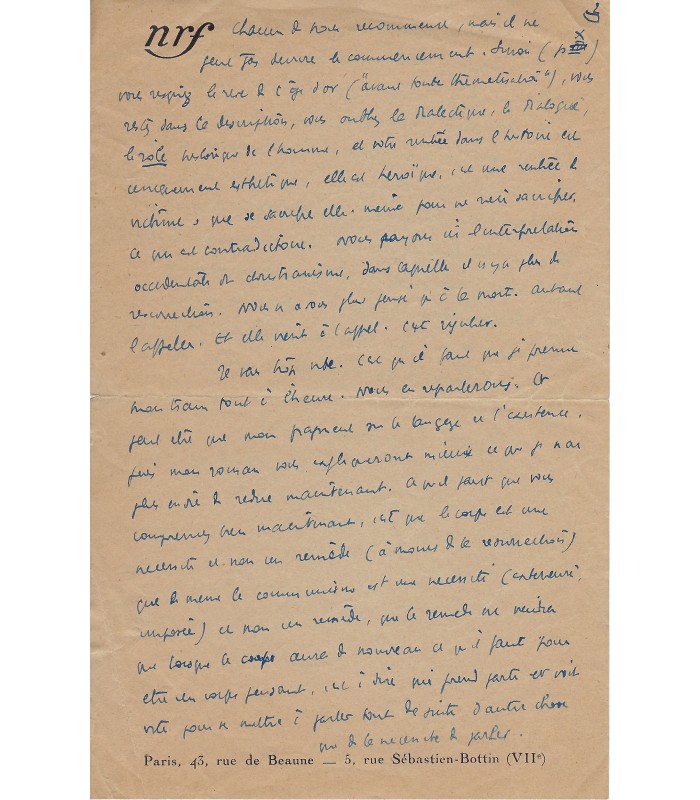 nrf
chacun de nous recommence, mais il ne
peut pas decrire le commencement. Sinon (p
vous rejoignez le reve de l'âge d'or ("avant toute thematisation"), vous
restez dans la description, vous oubliez la dialectique, le dialogue,
le role historique de l'homme, et votre rentrée dans l'histoire est
uniquement esthetique, elle est heroïque, c'est une rentrée de
victime, que se sacrifie elle-même pour ne rien sacrifier,
ce qui est contradictoire. Nous payons ici l'interpretation
occidentale du christianisme, dans laquelle il n'y a plus de
resurrection. Nous n'avons plus pensé qu'à la mort. autant
l'appeler. Et elle vient à l'appel. C'est régulier.
Je vais trop vite. C'est qu'il faut que je prenne
mon train tout à l'heure. Nous en reparlerons. Et
peut etre que mon fragment sur le langage et l'existence,
puis mon roman vous expliqueront mieux ce que je n'ai
plus envie de redire maintenant. Ce qu'il faut que vous
compreniez bien maintenant, c'est que le corps est une
necessité et non un remède (à moins de la resurrection)
que de meme le communisme est une necessité (interieure,
imposée) et non un remède, que le remede ne viendra
que lorsque le corps aura de nouveau ce qu'il faut pour
etre un corps pensant, c'est à dire qui prend parti et voit
vite pour se mettre à parler tout de suite d'autre chose
que de la necessité de parler.
Paris, 43, rue de Beaune — 5, rue Sébastien-Bottin (VIIe)